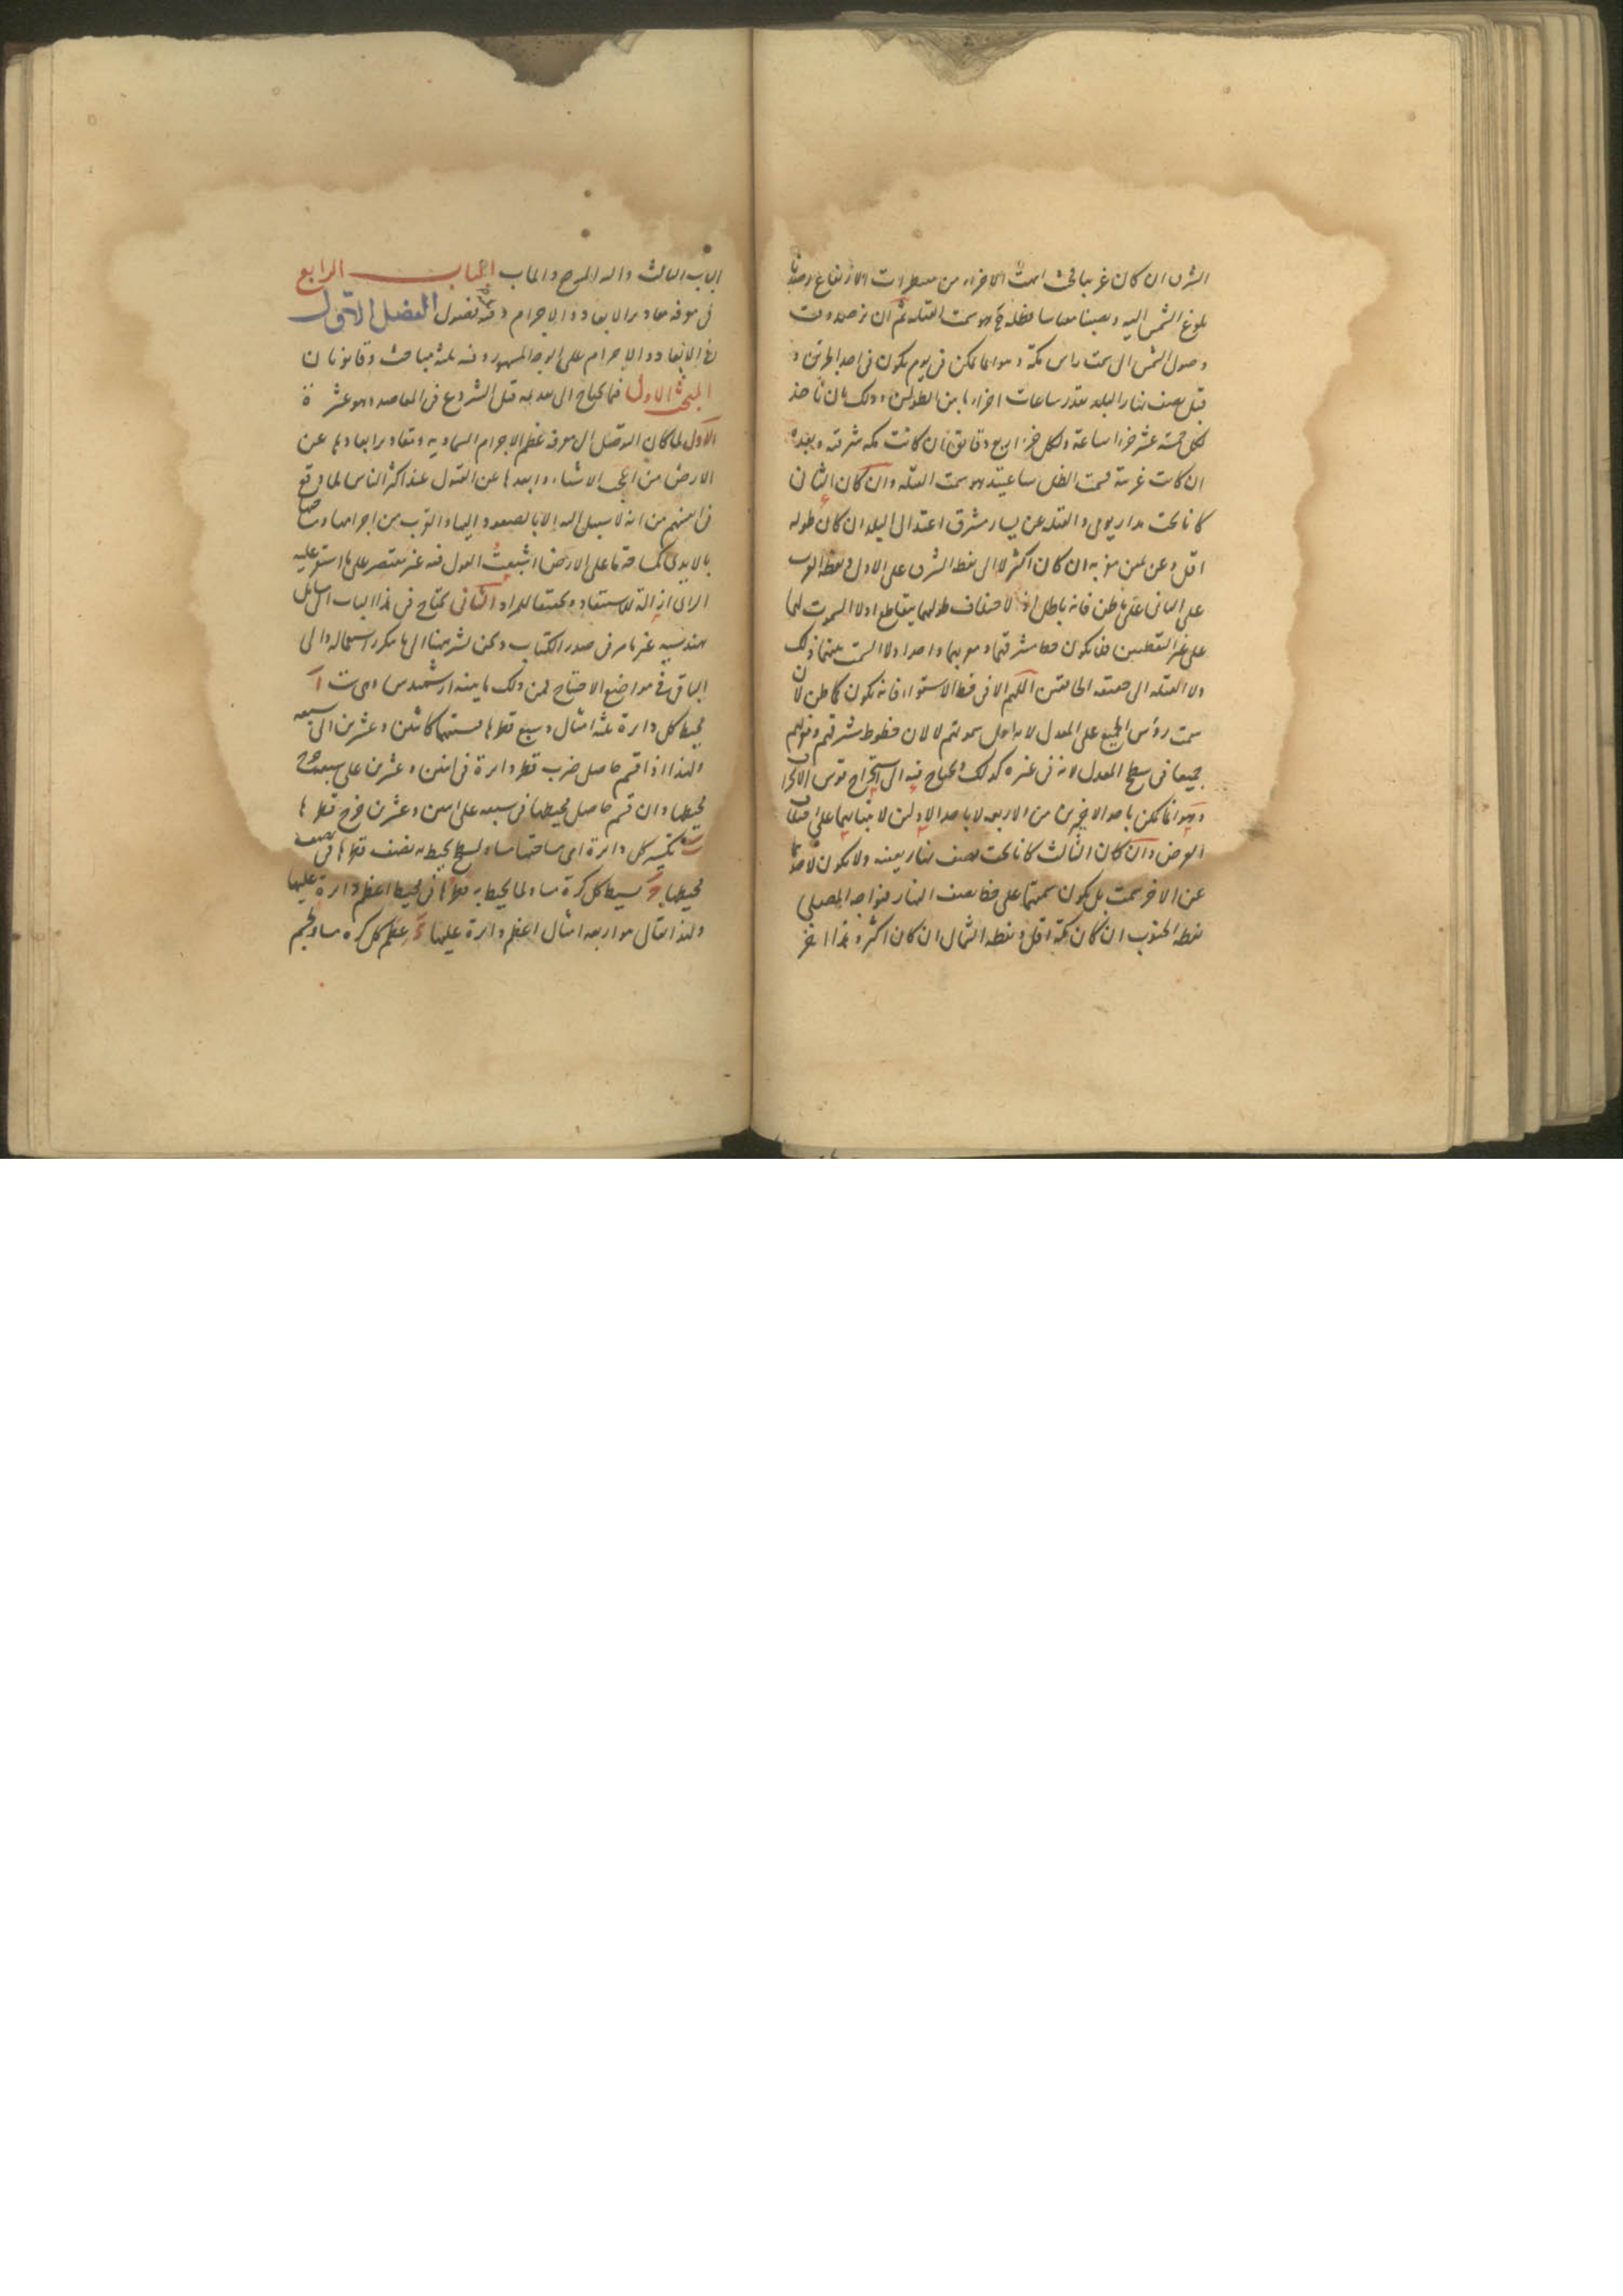 الشرق ان كان غربيا فحيث الاجزاء من مقنطرات الارتفاع رصدنا
بلوغ الشمس اليه ونصبنا مقياسا فظله ح هو سمت القبلة ثم ان نرصد وقت
وصول الشمس الى سمت راس مكة وهو انما يمكن في يوم يكون في احد الجزئين و
قبل نصف نهار البلد بقدر ساعات اجزاء ما بين الطولين وذلك بان تاخذ
لكل خمسة عشر جزءا ساعة ولكل جزء اربع دقايق ان كانت مكة شرقية وبعده
ان كانت غربية فسمت الظل ساعتئذ هو سمت القبلة وان كان الثاني
كانا تحت مدار يومي والقبلة عن يسار مشرق اعتدال البلد ان كان طوله
اقل وعن يمين مغربه ان كان اكثر لا الى نقطة الشرق على الاول ونقطة الغرب
على الثاني على ما ظن فانه باطل اذ لاختلاف طولهما يتقاطع
على غير القطبين فلا يكون خطا مشرقهما ومغربهما واحدا ولا السمت بينهما ذلك
ولا القبلة الى حقيقة الخافقين اللهم الا في خط الاستواء فانه يكون كما ظن لان
سمت رؤس الجميع على المعدل لان خطوط مشرقهم ومغربهم
جميعا في سطح المعدل لانه في غيره كذلك ويحتاج فيه الى استخراج قوس الانحراف
وهو انما يمكن باحد الاخيرين من الاربعة لا باحد الاولين لابتنايهما على اختلاف
العرض وان كان الثالث كانا تحت نصف نهار بعينه ولا يكون لاحدهما
عن الاخر سمت بل يكون سمتهما على خط نصف النهار فيواجه المصلي
نقطة الجنوب ان كان مكة اقل ونقطة الشمال ان كان اكثر وهذا اخر
الباب الثالث واليه المرجع والماب الباب الرابع
في معرفة مقادير الابعاد والاجرام وفيه فصول الفصل الاول
في الابعاد والاجرام على الوجه المشهور وفيه ثلثة مباحث وقانونان
المبحث الاول فيما يحتاج الى تقديمه قبل الشروع في المقاصد وهو عشرة
الاول لما كان التوصل الى معرفة عظم الاجرام السماوية ومقادير ابعادها عن
الارض من اعجب الاشياء وابعدها عن القبول عند اكثر الناس لما وقع
في انفسهم من انه لا سبيل اليه الا بالصعود اليها والقرب من اجرامها ومساحتها
بالايدي كمساحة ما على الارض اشبعت القول فيه غير مقتصر على ما استقر عليه
الراي ازالة للاستبعاد وتحقيقا للمراد الثاني يحتاج في هذا الباب الى مسائل
هندسية غير ما مر في صدر الكتاب ونحن نشير هنا الى ما يتكرر استعماله والى
الباقي في مواضع الاحتياج فمن ذلك ما بينه ارشميدس وهي ست ا
محيط كل دايرة ثلثة امثال وسبع قطرها فنسبتهما كاثنين وعشرين الى سبعة
ولهذا اذا قسم حاصل ضرب قطر دايرة في اثنين وعشرين على سبعة خرج
محيطها وان قسم حاصل محيطها في سبعة على اثنين وعشرين خرج قطرها
ب تكسير كل دايرة اي مساحتها مساو لسطح يحيط به نصف قطرها في نصف
محيطها ج بسيط كل كرة مساو لما يحيط به قطرها في محيط اعظم دايرة عليها
ولهذا يقال هو اربعة امثال اعظم دايرة عليها د عظم كل كرة مساو لمجسم